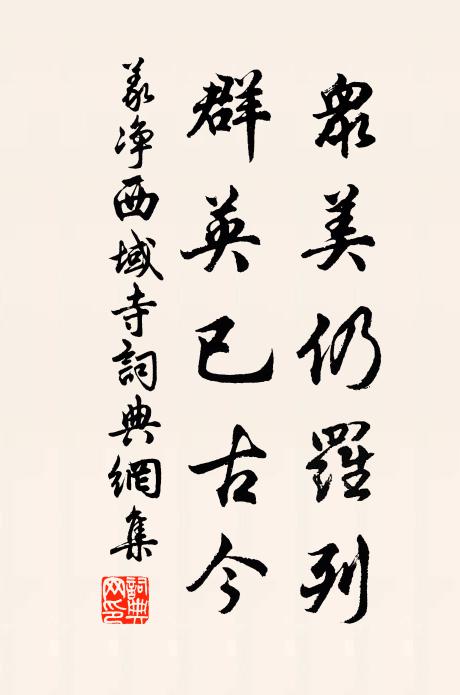 眾美仍羅列
群英已古今
義净西域寺詞典網集
詞典网印